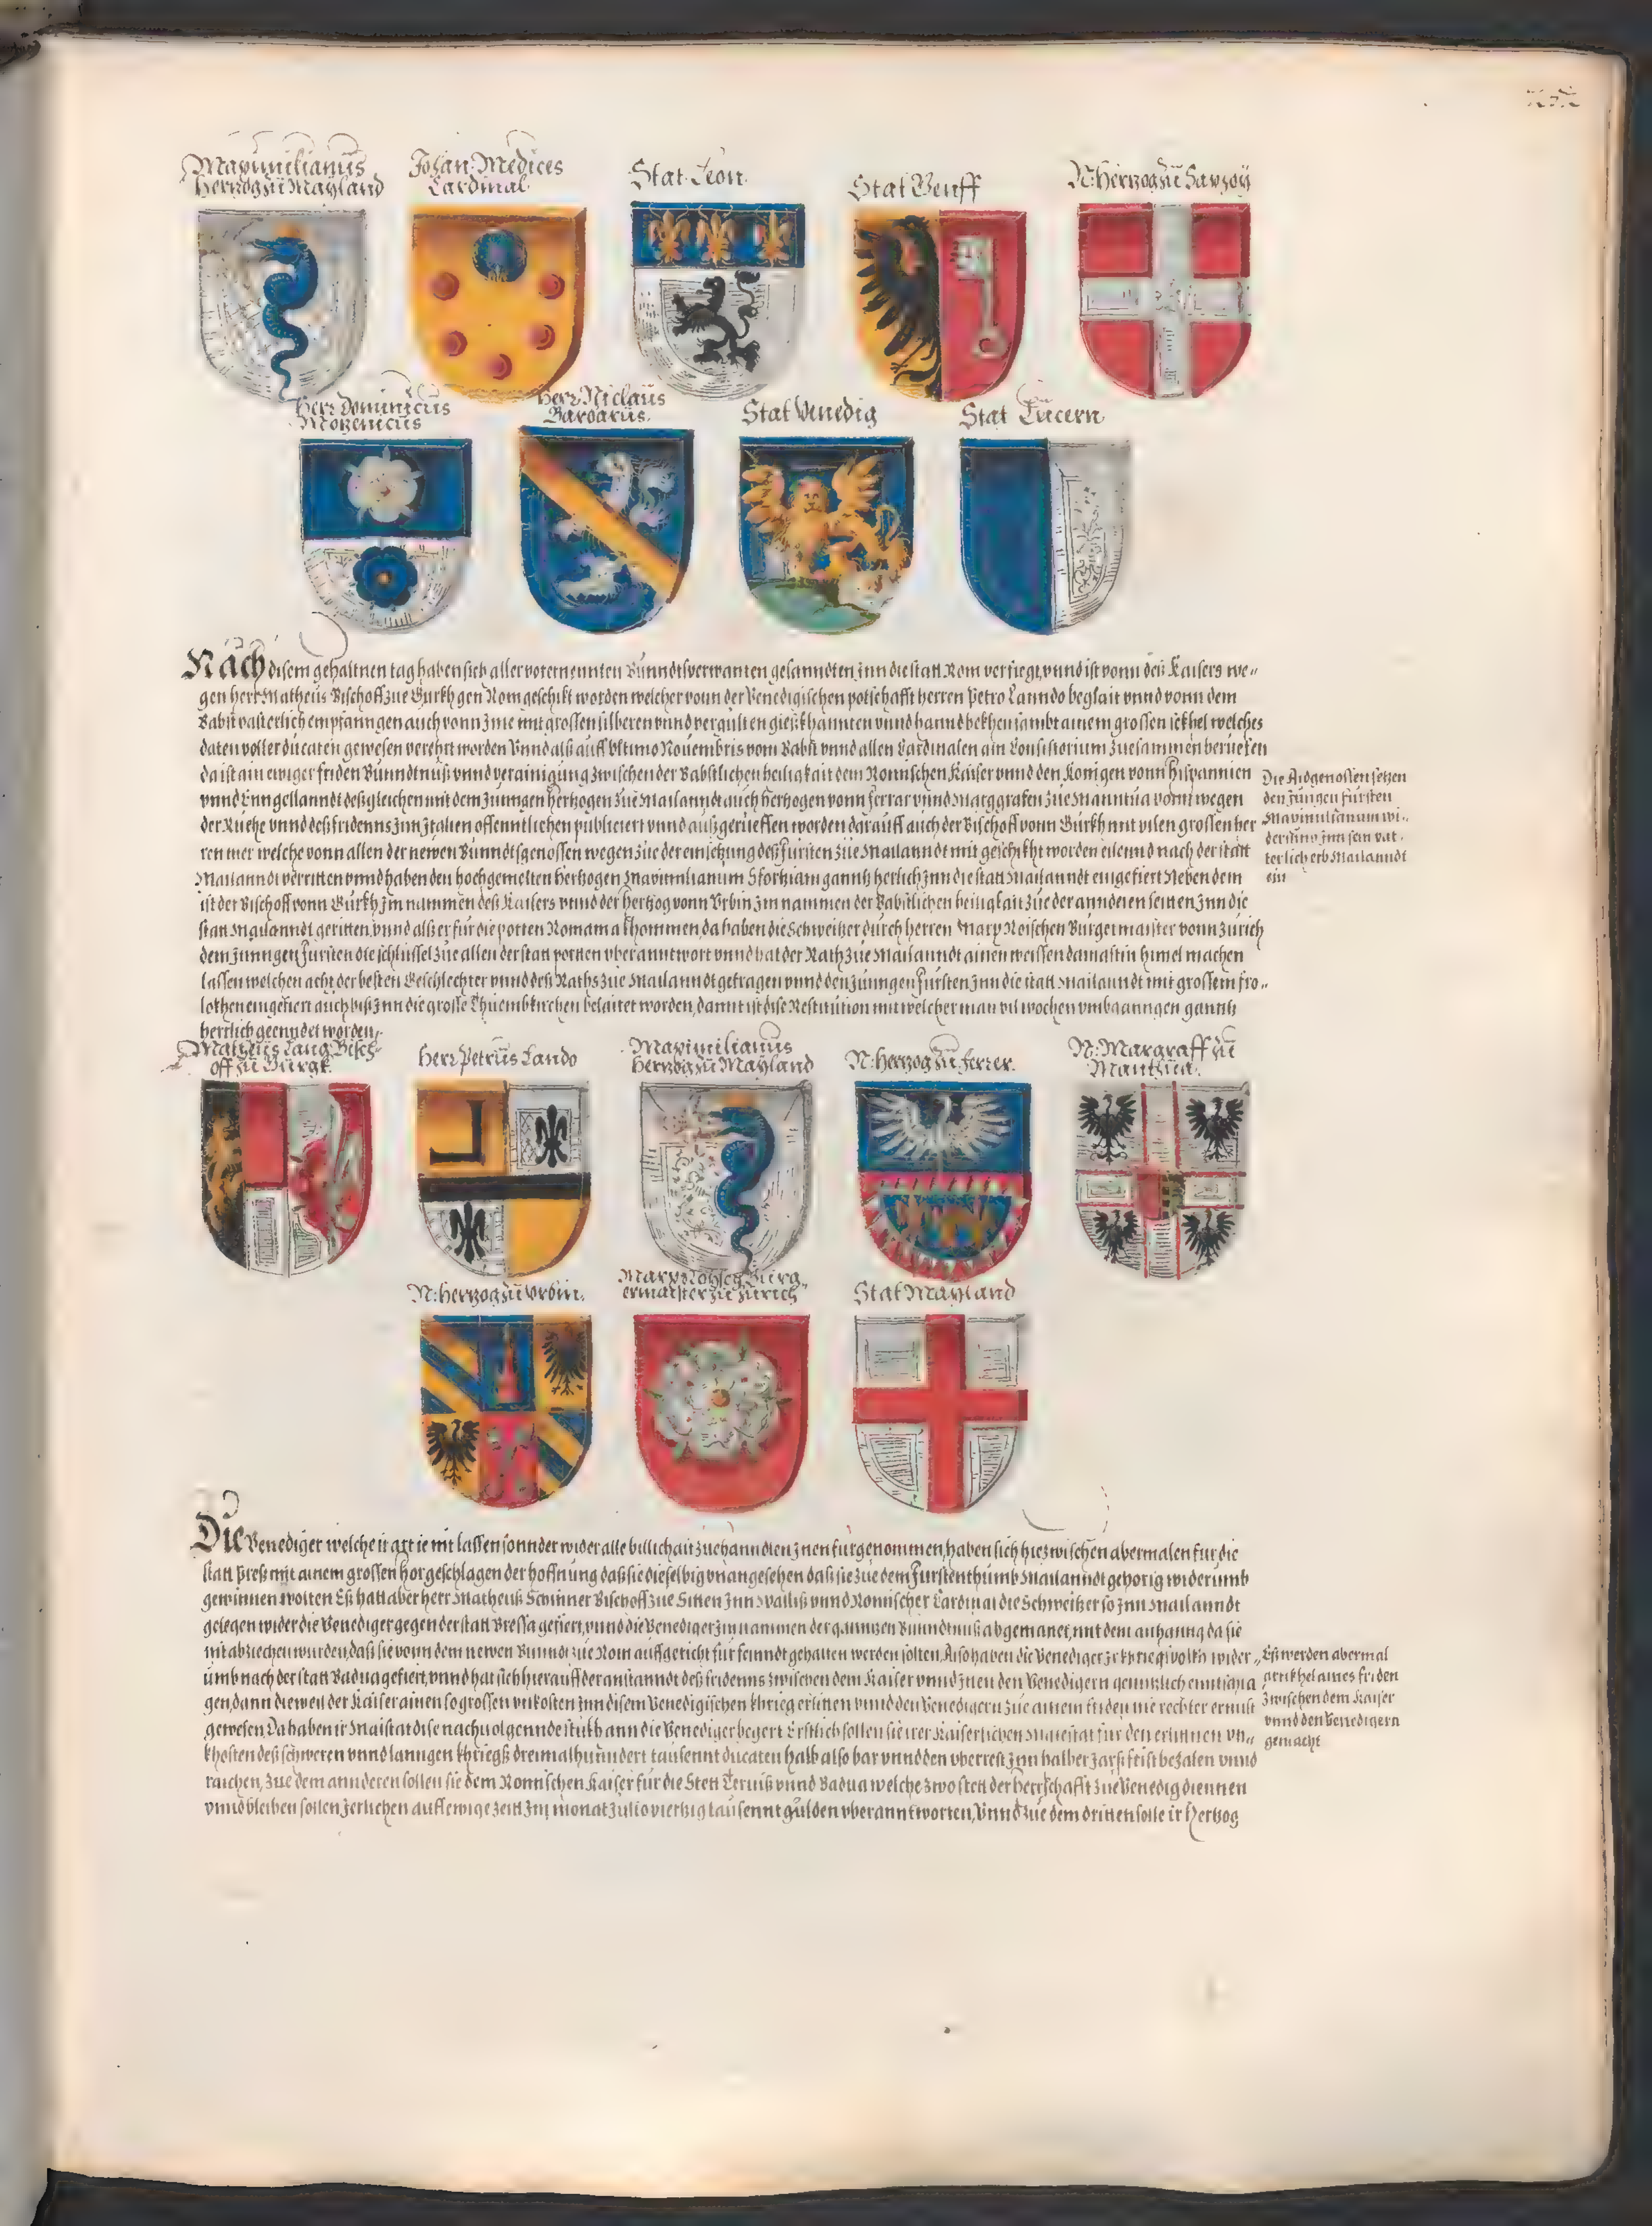 Maximilianus
Herzog zů Mayland
Johan: Medices
Cardinal.
Stat Leon.
Stat Genff
N: Herzog zů Savzoy
Herr Dominicus
Mozenicus
Herr Niclaus
Barbarus.
Stat Venedig
Stat Lucern.
Nach disem gehaltnen tag haben sich aller vorernennten Bunndtsverwanten gesanndten Jnn die statt Rom verfiegt, vnnd ist vonn deß Kaisers we-
gen herr Matheus Bischoff zue Gurkh gen Rom geschikt worden welcher vonn der Venedigischen potschafft herren Petro Lanndo beglait vnnd vonn dem
Babst vätterlich empfanngen auch vonn Jme mit grossen silberen vnnd vergulten gießkhannten vnnd hanndbekhen sambt ainem grossen sekhel welches
daten voller ducaten gewesen verehrt worden Vnnd alß auff Vltimo Nouembris vom Babst vnnd allen Cardinalen ain Consistorium zuesammen berueffen
da ist ain ewiger friden Bunndtnuß vnnd verainigung zwischen der Bäbstlichen heiligkait dem Romischen Kaiser vnnd den Konigen vonn Hispannien
vnnd Enngellanndt deßgleichen mit dem Jungen Hertzogen zue Mailanndt auch Hertzogen vonn Ferrar vnnd Marggrafen zue Manntua vonn wegen
der Ruehe vnnd deß fridenns Jnn Jtalien offenntlichen publiciert vnnd außgerueffen worden darauff auch der Bischoff vonn Gurkh mit vilen grossen her
ren mer welche vonn allen der newen Bunndtsgenossen wegen zue der einsetzung deß Fursten zue Mailanndt mit geschikht worden eilennd nach der statt
Mailanndt verritten vnnd haben den hochgemelten Hertzogen Maximilianum Sforziam ganntz herlich Jnn die statt Mailanndt eingefiert Neben dem
ist der Bischoff vonn Gurkh Jm nammen deß Kaisers vnnd der Hertzog vonn Vrbin Jm nammen der Bäbstlichen heiligkait zue der annderen seitten Jnn die
statt Mailanndt geritten, vnnd alß er für die potten Romam akhommen, da haben die Schweitzer durch herren Marx Roischen Burgermaister vonn Zürich
dem Junngen Fürsten die schlüssel zue allen der statt portten vberanntwort vnnd hat der Rath zue Mailanndt ainen weissen damastin himel machen
lassen welchen acht der besten Geschlechter vnnd deß Raths zue Mailanndt getragen vnnd den Junngen Fursten Jnn die statt Mailanndt mit grossem fro-
lokhen eingefiert auch biß Jnn die grosse Thuembkirchen belaitet worden, damit ist dise Restitution mit welcher man vil wochen vmbganngen ganntz
herrlich geenndet worden.
Die Aidgenossen setzen
den Jungen fürsten
Maximilianum wi-
derumb Jnn sein vät-
terlich erb Mailanndt
ein
Matheus Lang Bisch-
off zů Gurgk.
Herr Petrus Lando
Maximilianus
Herzog zů Mayland
N: Herzog zů Ferrer.
N: Margraff zů
Manthua.
N: Herzog zů Vrbin.
Marx Roysch Burg-
ermaister zů Zürich
Stat Mayland
Die Venediger welche ir art ie nit lassen sonnder wider alle billichait zuehanndlen Jnen furgenommen, haben sich hiezwischen abermalen fur die
statt Preß mit ainem grossen hör geschlagen der hoffnung daß sie dieselbig vnangesehen daß sie zue dem Furstenthumb Mailanndt gehorig widerumb
gewinnen wolten Eß hatt aber herr Matheuß Schinner Bischoff zue Sitten Jnn Walliß vnnd Romischer Cardinal die Schweitzer so Jnn Mailanndt
gelegen wider die Venediger gegen der statt Bressa gefiert, vnnd die Venediger Jm nammen der gantzen Bunndtnuß abgemanet, mit dem anhanng da sie
nit abziechen wurden, daß sie vonn dem newen Bunndt zue Rom auffgericht für feinndt gehalten werden solten, Also haben die Venediger Jr khriegsvolkh wider-
umb nach der statt Badua gefiert, vnnd hat sich hierauff der anstanndt deß fridenns zwischen dem Kaiser vnnd Jnen den Venedigern genntzlich
gen, dann dieweil der Kaiser ainen so grossen vnkosten Jnn disem Venedigischen khrieg erlitten vnnd den Venedigern zue ainem friden nie rechter ernnst
gewesen, Da haben ir Maistat dise nachuolgennde stukh ann die Venediger begert Erstlich sollen sie irer Kaiserlichen Maiestat für den erlitnen vn-
khosten deß schweren vnnd lanngen khriegß dreimalhunndert tausennt ducaten halb also bar vnnd den vberrest Jnn halber Jarß frist bezalen vnnd
raichen, zue dem annderen sollen sie dem Romischen Kaiser für die Stett Terviß vnnd Badua welche zwo stett der Herrschafft zue Venedig diennen
vnnd bleiben sollen Jerlichen auff ewige zeitt Jm monat Julio viertzig tausennt gulden vberanntworten, Vnnd zue dem dritten solle ir Hertzog
Eß werden abermal
artikhel aines friden
zwischen dem Kaiser
vnnd den Venedigern
gemacht